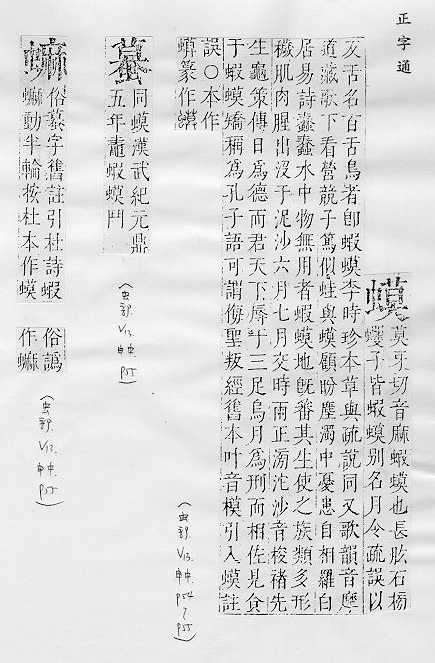 正字通
蟆
莫牙切音麻蝦蟆也長肱石榜
子皆蝦蟆别名月令疏誤以
反舌名百舌鳥者卽蝦蟆李時珍本草與疏說同又歌韻音麽
道藏歌下看營競子篤似蛙與蟆顧盼塵濁中憂患自相羅白
居易詩蠢蠢水中物無用者蝦蟆地旣蕃其生使之族類多形
穢肌肉腥出沒于泥沙六月七月交時雨正滂沱沙音梭褚先
生龜策傳日爲德而君天下辱于三足烏月爲刑而相佐見食
于蝦蟆矯稱爲孔子語可謂侮聖叛經舊本叶音模引入蟆註
誤○本作
篆作
(虫部 V12. 申中. P54~P55)
蟇
同蟆漢武紀元鼎
五年鼃蝦蟆鬥
(虫部 V12. 申中. P55)
俗蟇字舊註引杜詩蝦
動半輪按杜本作蟆
俗譌
作
(虫部 V12. 申中. P55)